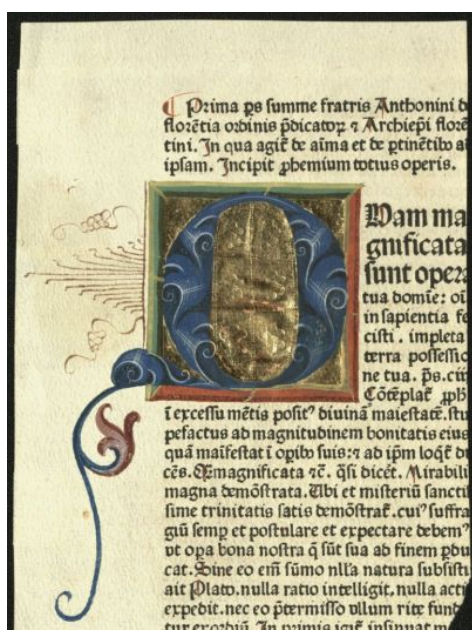 Prima ps summe fratris Anthonini d
florētia ordinis p̄dicatoꝝ ⁊ Archiep̄i florē
tini. In qua agiť de aīma et de ꝑtinētibꝰ a
ipsam. Incipit ꝓhemium totius operis.
Quam ma
gnificata
sunt oper
tua domīe: oī
in sapientia fe
cisti. impleta
terra possessio
ne tua. p̄s. ciii
Cōtēplať ꝓph
ī excessu mētis positꝰ diuinā maiestatē. stu
pefactus ad magnitudinem bonitatis eius
quā maīfestat ī oꝑibꝰ suis: ⁊ ad ip̄m loqť di
cēs. Qmagnificata ⁊c̄. q̄si dicēt. Mirabili
magna demōstrata. Ubi et misteriū sancti
sime trinitatis satis demōstrať. cuiꝰ suffra
giū semꝑ et postulare et expectare debemꝰ
vt oꝑa bona nostra q̄ sūt sua ab finem ꝓdu
cat. Sine eo eīm sūmo nll̄a natura subsisti
ait Plato. nulla ratio intelligit, nulla acti
expedit. nec eo p̄termisso vllum rite fund
tur exordiū. In primis igiť insinuat m